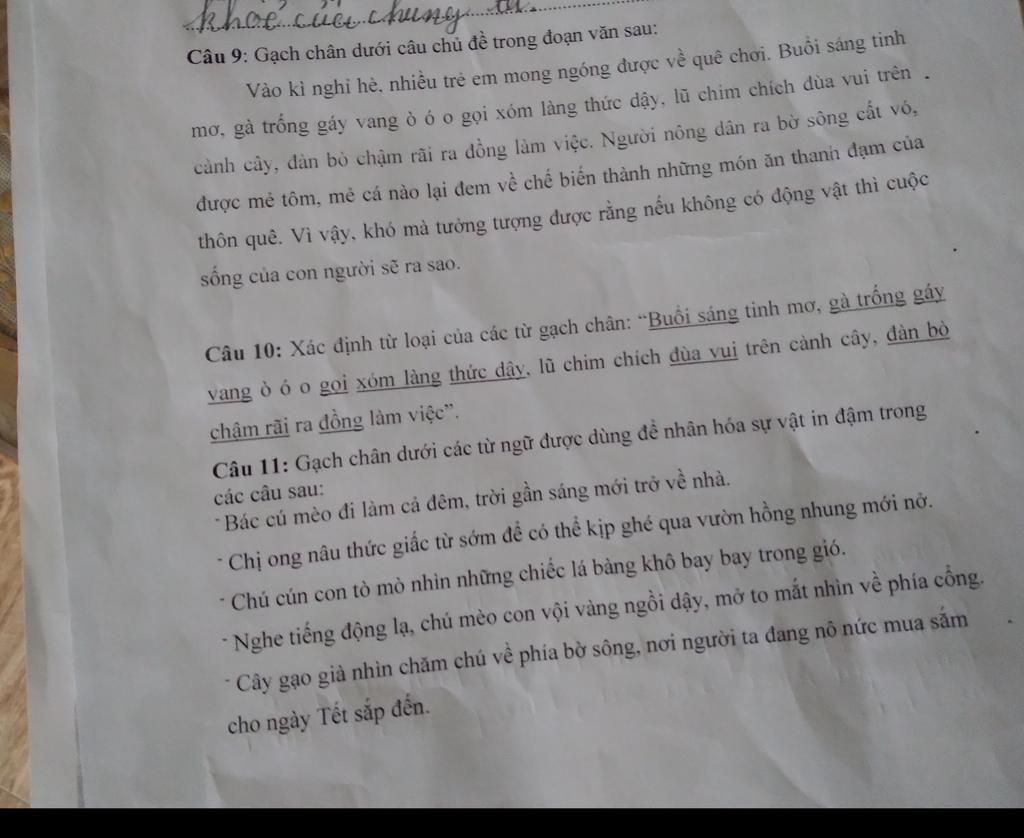 khoẻ của chung ta.
Câu 9: Gạch chân dưới câu chủ đề trong đoạn văn sau:
Vào kì nghỉ hè, nhiều trẻ em mong ngóng được về quê chơi. Buổi sáng tinh
mơ, gà trống gáy vang ò ó o gọi xóm làng thức dậy, lũ chim chích đùa vui trên
cành cây, đàn bò chậm rãi ra đồng làm việc. Người nông dân ra bờ sông cất vó,
được mẻ tôm, mẻ cá nào lại đem về chế biến thành những món ăn thanh đạm của
thôn quê. Vì vậy, khó mà tưởng tượng được rằng nếu không có động vật thì cuộc
sống của con người sẽ ra sao.
Câu 10: Xác định từ loại của các từ gạch chân: “Buổi sáng tinh mơ, gà trống gáy
vang ò ó o gọi xóm làng thức dậy, lũ chim chích đùa vui trên cành cây, đàn bò
chậm rãi ra đồng làm việc”.
Câu 11: Gạch chân dưới các từ ngữ được dùng để nhân hóa sự vật in đậm trong
các câu sau:
- Bác cú mèo đi làm cả đêm, trời gần sáng mới trở về nhà.
- Chị ong nâu thức giấc từ sớm để có thể kịp ghé qua vườn hồng nhung mới nở.
- Chú cún con tò mò nhìn những chiếc lá bàng khô bay bay trong gió.
- Nghe tiếng động lạ, chú mèo con vội vàng ngồi dậy, mở to mắt nhìn về phía cổng.
- Cây gạo già nhìn chăm chú về phía bờ sông, nơi người ta đang nô nức mua sắm
cho ngày Tết sắp đến.